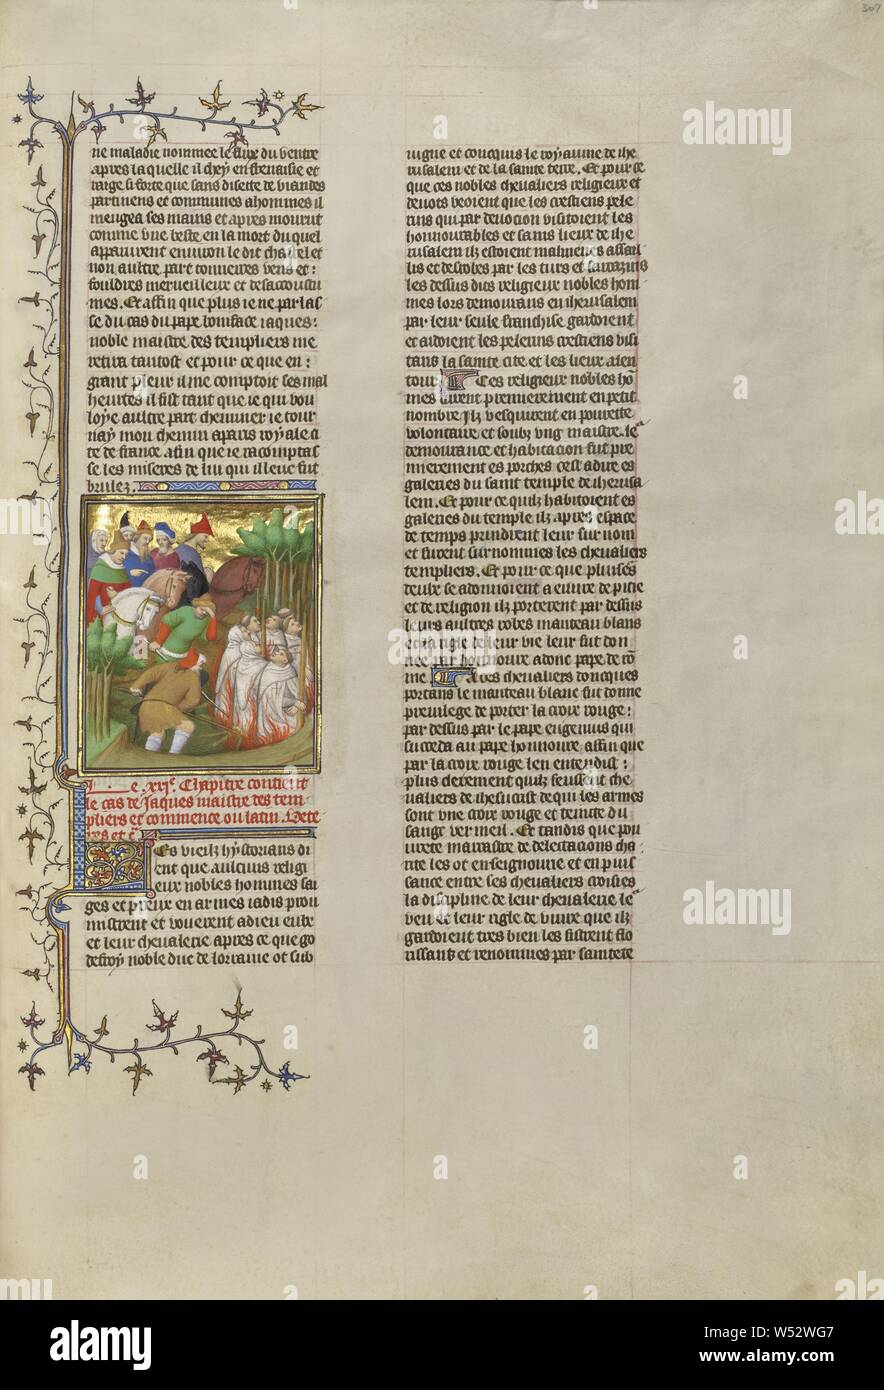 307
ne maladie nommee le flux du ventre
apres la quelle il chey en frenaisie et
rarge si forte que sans disette de viandes
partinens et communes a hommes il
mengea ses mains et apres mourut
comme vne beste, en la mort du quel
apparurent enuiron le dit chastel et
non aultre part tonnerres vens et
fouldres merueilleux et desaccoustu
mes. Et affin que plus ie ne parlas
se du cas du pape boniface iaques
noble maistre des templiers me
retira tantost et pour ce que en
grant pleur il me comptoit ses mal
heurtes il fist tant que ie qui vou
loye aultre part cheminer ie tour
nay mon chemin a paris royale ci
te de france afin que ie racomptas
se les miseres de lui qui illeuc fut
brulez.
le .xxi.e Chapitre contient
le cas de Jaques maistre des tem
pliers et commence ou latin. Vete
res et c
Les vieilz hystorians di
ent que aulcuns religi
eux nobles hommes sai
ges et preux en armes iadis prou
mistrent et vouerent a dieu eulx
et leur cheualerie apres ce que go
deffroy noble duc de lorraine ot sub
iugue et conquis le royaume de ihe
rusalem et de la sainte terre. Et pour ce
que ces nobles cheualiers religieux et
deuots veoient que les crestiens pele
rins qui par deuocion visitoient les
honnourables et sains lieux de ihe
rusalem ilz estoient maintefois assail
lis et desrobes par les turcs et sarrazins
les dessus dits religieux nobles hom
mes lors demourans en iherusalem
par leur seule franchise gardoient
et aidoient les pelerins crestiens visi
tans la sainte cite et les lieux alen
tour Ces religieux nobles hom
mes furent premierement en petit
nombre Ilz vesquirent en pourete
volontaire et soubz vng maistre. le
demourance et habitacion fut pre
mierement es porches cest a dire es
galeries du saint temple de iherusa
lem. Et pour ce quilz habitoient es
galeries du temple ilz apres espace
de temps prindrent leur sur nom
et furent surnommes les cheualiers
templiers. Et pour ce que pluiseurs
deulx se adonnoient a euure de pitie
et de religion ilz porterent par dessus
leurs aultres robes manteau blans
et la rigle de leur vie leur fut don
nee par honnoure adonc pape de rom
me A ces cheualiers doncques
portans le manteau blanc fut donne
preuilege de porter la croix rouge
par dessus par le pape eugenius qui
succeda au pape honnoure affin que
par la croix rouge len entendist
plus clerement quilz feussent che
ualiers de ihesucrist de qui les armes
sont vne croix rouge et teinte du
sang vermeil. Et tandis que pou
urete marrastre de delectacions cha
rite les ot enseignourie et en puis
sance entre ses cheualiers croisies
la discipline de leur cheualerie le
veu et leur rigle de viure que ilz
gardoient tres bien les firent flo
rissants et renommes par saintete
alamy
alamy
Image ID: W52WG7
www.alamy.com